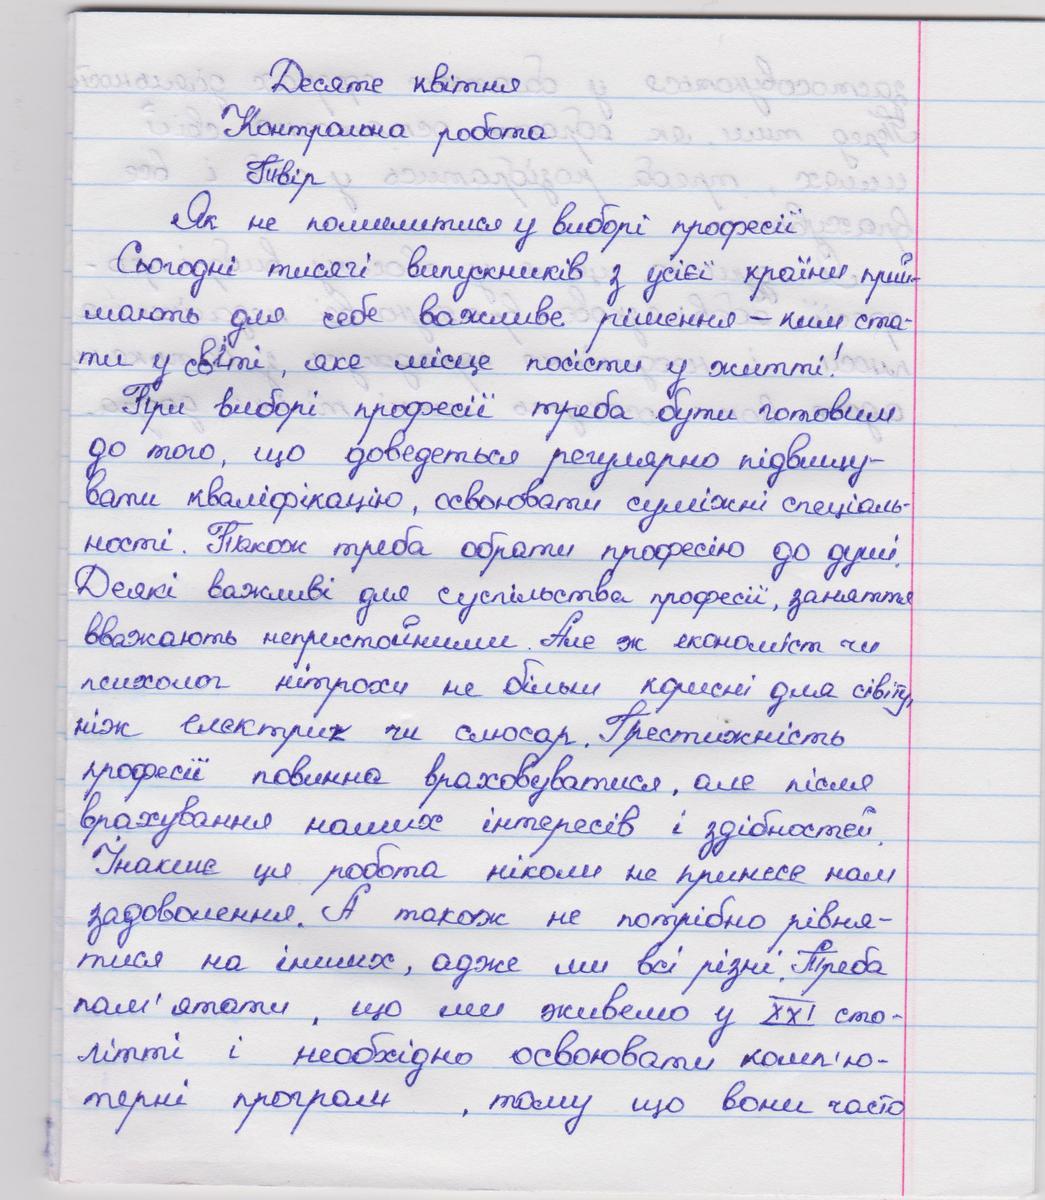 Десяте квітня
Контрольна робота
Твір
Як не помилитися у виборі професії
Сьогодні тисячі випускників з усієї країни прий-
мають для себе важливе рішення – ким ста-
ти у світі, яке місце посісти у житті!
При виборі професії треба бути готовим
до того, що доведеться регулярно підвищу-
вати кваліфікацію, освоювати суміжні спеціаль-
ності. Також треба обрати професію до душі.
Деякі важливі для суспільства професії, заняття
вважають непристойними. Але ж економіст чи
психолог нітрохи не більш корисні для світу,
ніж електрик чи слюсар. Престижність
професії повинна враховуватися, але після
врахування наших інтересів і здібностей.
Інакше ця робота ніколи не принесе нам
задоволення. А також не потрібно рівня-
тися на інших, адже ми всі різні. Треба
пам'ятати, що ми живемо у XXI сто-
літті і необхідно освоювати комп'ю-
терні програм , тому що вони часто